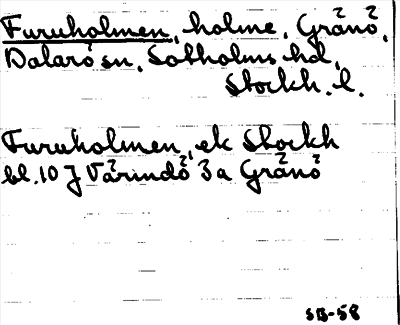 Furuholmen, holme, Gränö,
Dalarö sn, Sotholms hd,
Stockh. l.
Furuholmen, ek Stockh
bl. 10 J Värindö 3a Gränö
SB-58